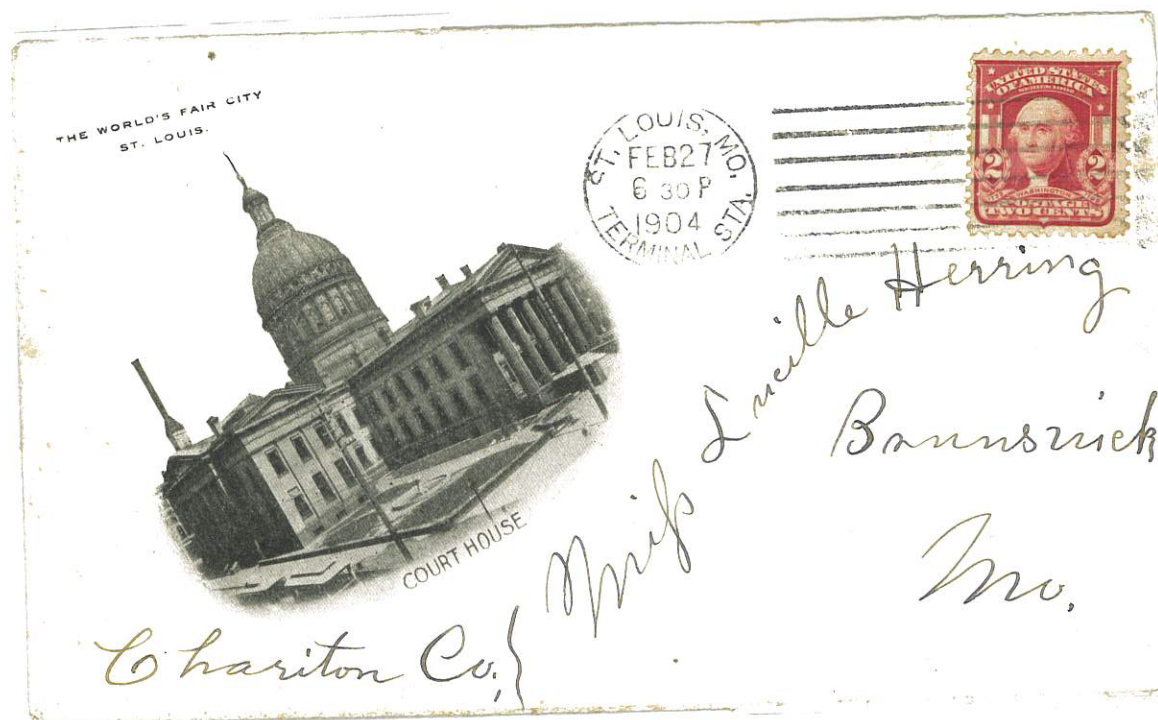 THE WORLD'S FAIR CITY
ST. LOUIS.
ST. LOUIS, MO.
FEB 27
6 30 P
1904
TERMINAL STA.
UNITED STATES
OF AMERICA
2 2
WASHINGTON
POSTAGE
TWO CENTS
COURT HOUSE
Miss Lucille Herring
Brunswick
Mo.
Chariton Co.